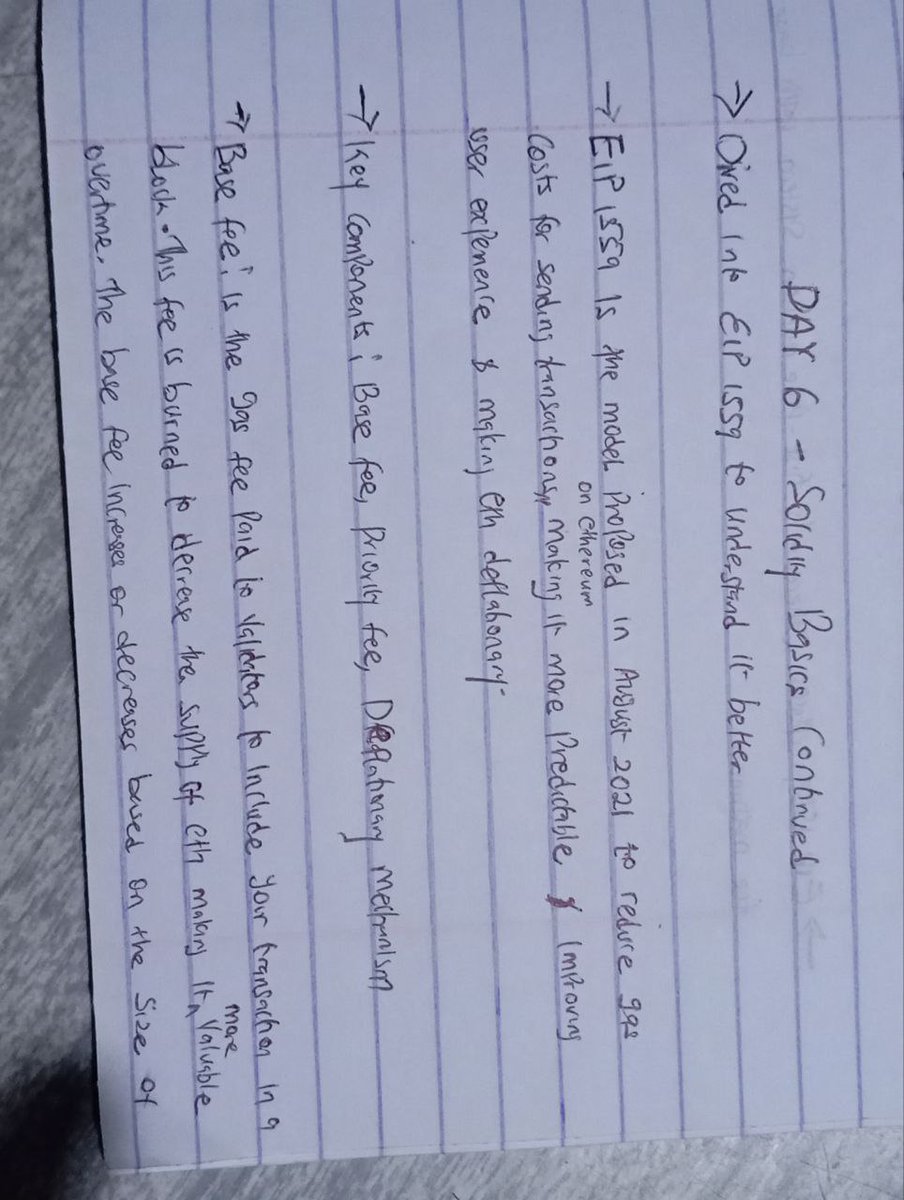 DAY 6 - Solidity Basics Continued
→ Dived Into EIP 1559 to understand it better
→ EIP 1559 Is the model proposed in August 2021 to reduce gas
on ethereum
Costs for sending transactions, making it more Predictable & Improving
user experience & making eth deflationary.
→ Key Components; Base fee, Priority fee, Deflationary mechanism
→ Base fee; is the gas fee Paid to validators to Include your transaction in a
more
block. This fee is burned to decrease the supply of eth making It valuable
overtime. The base fee increases or decreases based on the Size of